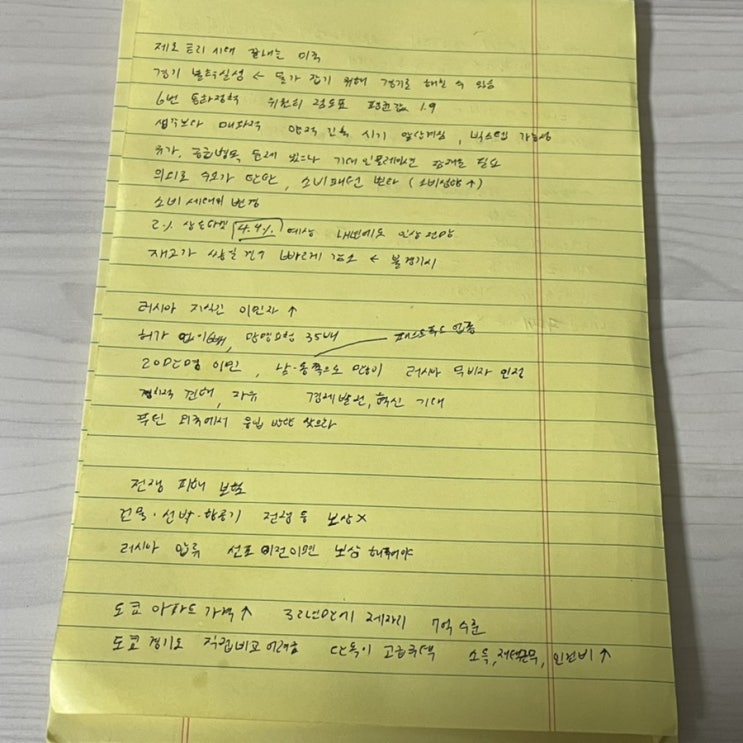 제로 금리 시대 끝내는 미국
경기 불확실성 ← 물가 잡기 위해 경기를 해칠 수 있음
6번 통화정책 위원회 점도표 평균값 1.9
생각보다 매파적 양적 긴축 시기 앞당겨짐, 빅스텝 가능성
유가, 공급병목 문제 있으나 기대 인플레이션 관리 필요
의외로 수요가 탄탄, 소비패턴 변화 (소비성향↑)
소비 세대의 변경
2% 상회 4.4% 예상 내년에도 인상 전망
재고가 쌓일 경우 빠르게 감소 ← 불경기시
러시아 지식인 이민자↑
허가 망명요청 35배
패스트푸드 업종
20만명 이민, 남·동쪽으로 많이 러시아 무비자 인정
정치적 견해, 자유 경제발전, 혁신 기대
푸틴 외국에서 유입 방안 찾으라
전쟁 피해 보험
건물·선박·항공기 전쟁 등 보상 X
러시아 압류 선포 이전이면 보상 해줘야
도쿄 아파트 가격↑ 32년만에 제자리 7억 수준
도쿄 경기도 직접비교 어려움 단독이 고급주택 소득, 재택근무, 인건비↑